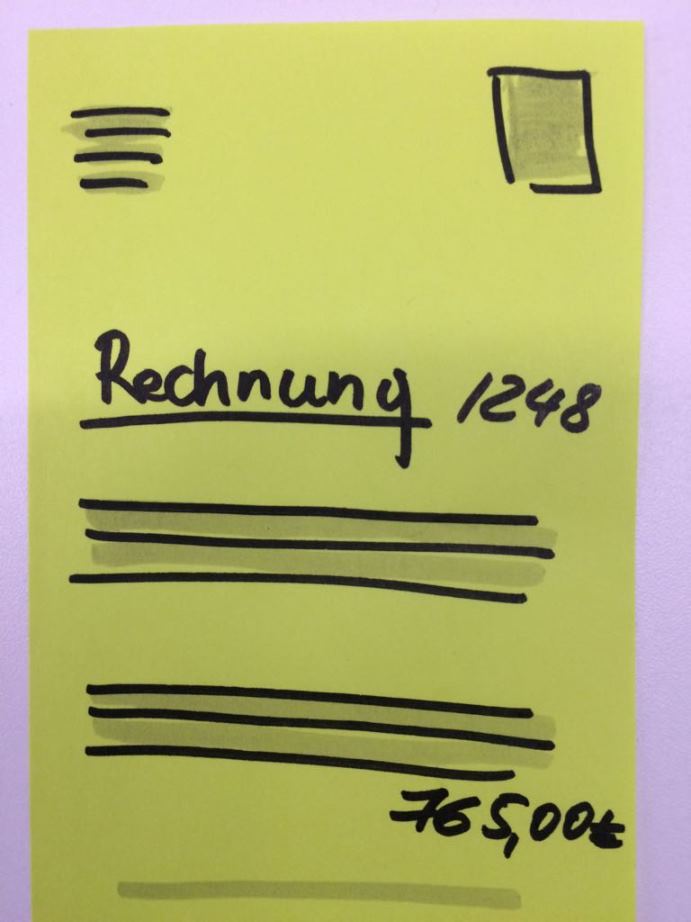 Rechnung 1248
765,00€